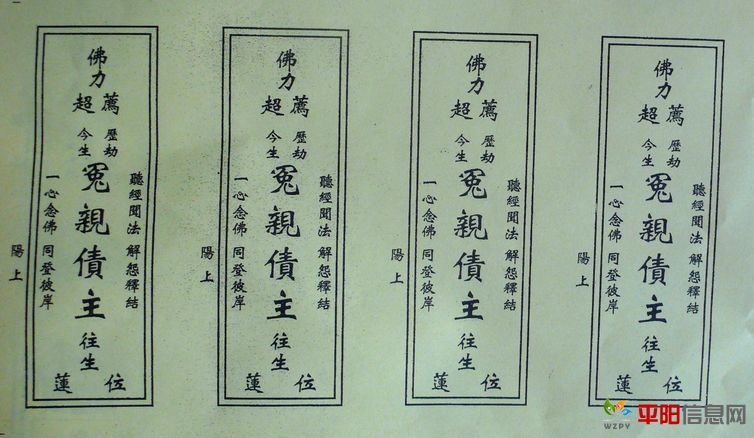 聽經聞法 解怨釋結
佛力
超薦
歷劫
今生
冤親債主
往生
蓮位
一心念佛 同登彼岸
陽上
聽經聞法 解怨釋結
佛力
超薦
歷劫
今生
冤親債主
往生
蓮位
一心念佛 同登彼岸
陽上
聽經聞法 解怨釋結
佛力
超薦
歷劫
今生
冤親債主
往生
蓮位
一心念佛 同登彼岸
陽上
聽經聞法 解怨釋結
佛力
超薦
歷劫
今生
冤親債主
往生
蓮位
一心念佛 同登彼岸
陽上
WZPY
平阳信息网